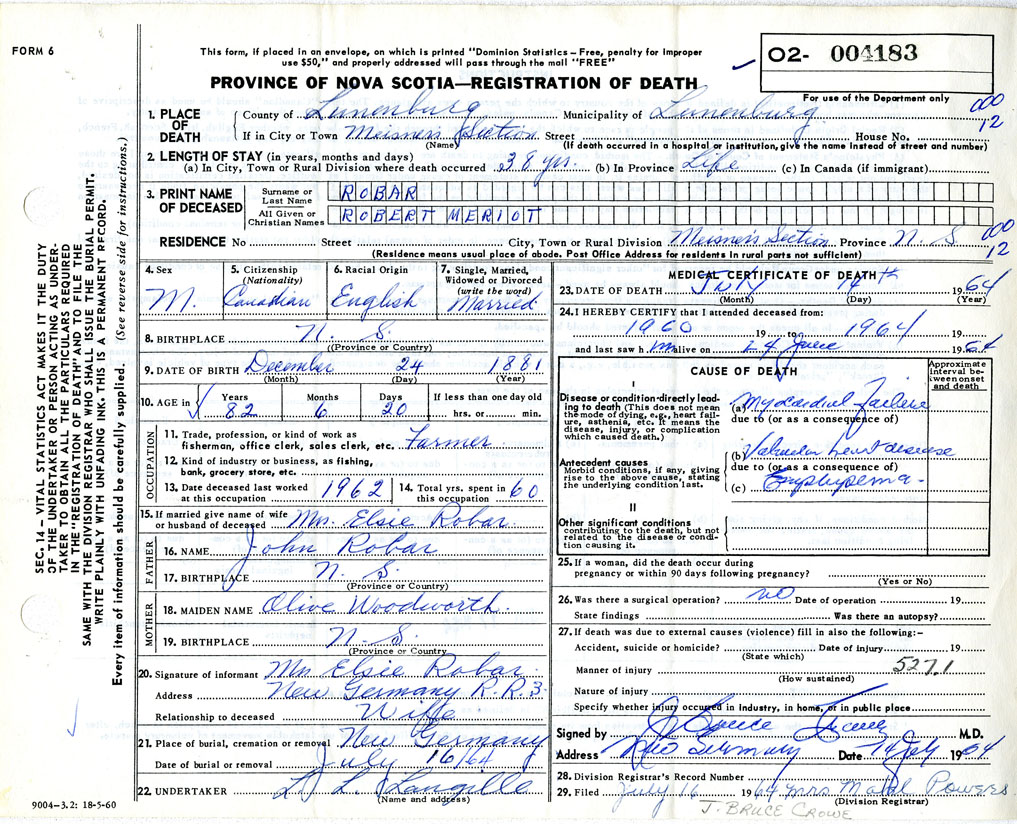 FORM 6
This form, if placed in an envelope, on which is printed "Dominion Statistics – Free, penalty for improper
use $50," and properly addressed will pass through the mail "FREE"
02- 004183
PROVINCE OF NOVA SCOTIA—REGISTRATION OF DEATH
For use of the Department only
SEC. 14 – VITAL STATISTICS ACT MAKES IT THE DUTY
OF THE UNDERTAKER OR PERSON ACTING AS UNDER-
TAKER TO OBTAIN ALL THE PARTICULARS REQUIRED
IN THE "REGISTRATION OF DEATH" AND TO FILE THE
SAME WITH THE DIVISION REGISTRAR WHO SHALL ISSUE THE BURIAL PERMIT.
WRITE PLAINLY WITH UNFADING INK. THIS IS A PERMANENT RECORD.
Every item of information should be carefully supplied. (See reverse side for instructions.)
1. PLACE OF DEATH
County of Lunenburg Municipality of Lunenburg 000 12
If in City or Town Meisner's Section Street House No.
(Name) (If death occurred in a hospital or institution, give the name instead of street and number)
2. LENGTH OF STAY (in years, months and days)
(a) In City, Town or Rural Division where death occurred 38 yrs. (b) In Province Life (c) In Canada (if immigrant)
3. PRINT NAME OF DECEASED
Surname or Last Name ROBAR
All Given or Christian Names ROBERT MERIOT
RESIDENCE No Street City, Town or Rural Division Meisner's Section Province N. S. 000 12
(Residence means usual place of abode. Post Office Address for residents in rural parts not sufficient)
4. Sex M.
5. Citizenship (Nationality) Canadian
6. Racial Origin English
7. Single, Married, Widowed or Divorced (write the word) Married
8. BIRTHPLACE N. S.
(Province or Country)
9. DATE OF BIRTH December 24 1881
(Month) (Day) (Year)
10. AGE in Years 82 Months 6 Days 20 If less than one day old hrs. or min.
OCCUPATION
11. Trade, profession, or kind of work as
fisherman, office clerk, sales clerk, etc. Farmer
12. Kind of industry or business, as fishing,
bank, grocery store, etc.
13. Date deceased last worked at this occupation 1962
14. Total yrs. spent in this occupation 60
15. If married give name of wife
or husband of deceased Mrs. Elsie Robar
FATHER
16. NAME John Robar
17. BIRTHPLACE N. S.
(Province or Country)
MOTHER
18. MAIDEN NAME Olive Woodworth
19. BIRTHPLACE N. S.
(Province or Country
20. Signature of informant Mrs Elsie Robar
Address New Germany R.R.3
Relationship to deceased Wife
21. Place of burial, cremation or removal New Germany
Date of burial or removal July 16/64
22. UNDERTAKER L. L. Langille
(Name and address)
9004–3.2: 18-5-60
MEDICAL CERTIFICATE OF DEATH
23. DATE OF DEATH July 14th 1964
(Month) (Day) (Year)
24. I HEREBY CERTIFY that I attended deceased from:
1960 19 to 1964 19
and last saw him alive on 24 June 1964
CAUSE OF DEATH
Approximate interval between onset and death
I
Disease or condition directly lead-
ing to death (This does not mean
the mode of dying, e.g., heart fail-
ure, asthenia, etc. It means the
disease, injury, or complication
which caused death.)
(a) Myocardial Failure
due to (or as a consequence of)
Antecedent causes
Morbid conditions, if any, giving
rise to the above cause, stating
the underlying condition last.
(b) Valvular heart disease
due to (or as a consequence of)
(c) Emphysema
II
Other significant conditions
contributing to the death, but not
related to the disease or condi-
tion causing it.
25. If a woman, did the death occur during
pregnancy or within 90 days following pregnancy?
(Yes or No)
26. Was there a surgical operation? no Date of operation 19
State findings Was there an autopsy?
27. If death was due to external causes (violence) fill in also the following:–
Accident, suicide or homicide? Date of injury 19
(State which)
Manner of injury 527.1
(How sustained)
Nature of injury
Specify whether injury occured in industry, in home, or in public place
Signed by J Bruce Crowe M.D.
Address New Germany Date 14 July 1964
28. Division Registrar's Record Number
29. Filed July 16 1964 Mrs Mabel Powers
(Division Registrar)
J. BRUCE CROWE